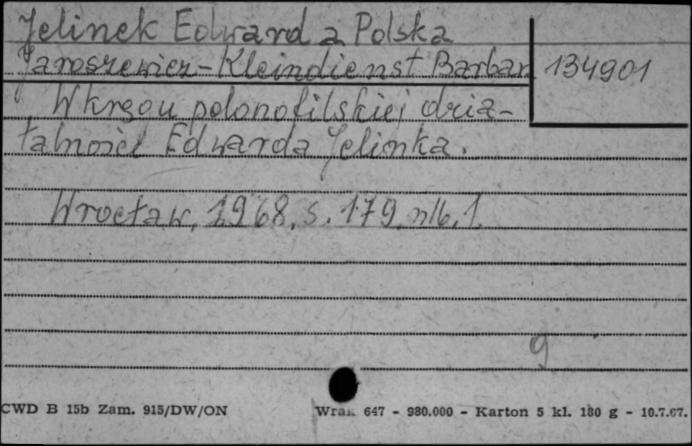 Jelinek Edward a Polska
Jaroszewicz-Kleindienst Barbar
134901
W kręgu polonofilskiej dzia-
łalności Edwarda Jelinka.
Wrocław, 1968, s. 179, nlb. 1.
9
CWD B 15b Zam. 915/DW/ON
647 - 980.000 - Karton 5 kl. 180 g - 10.7.67.